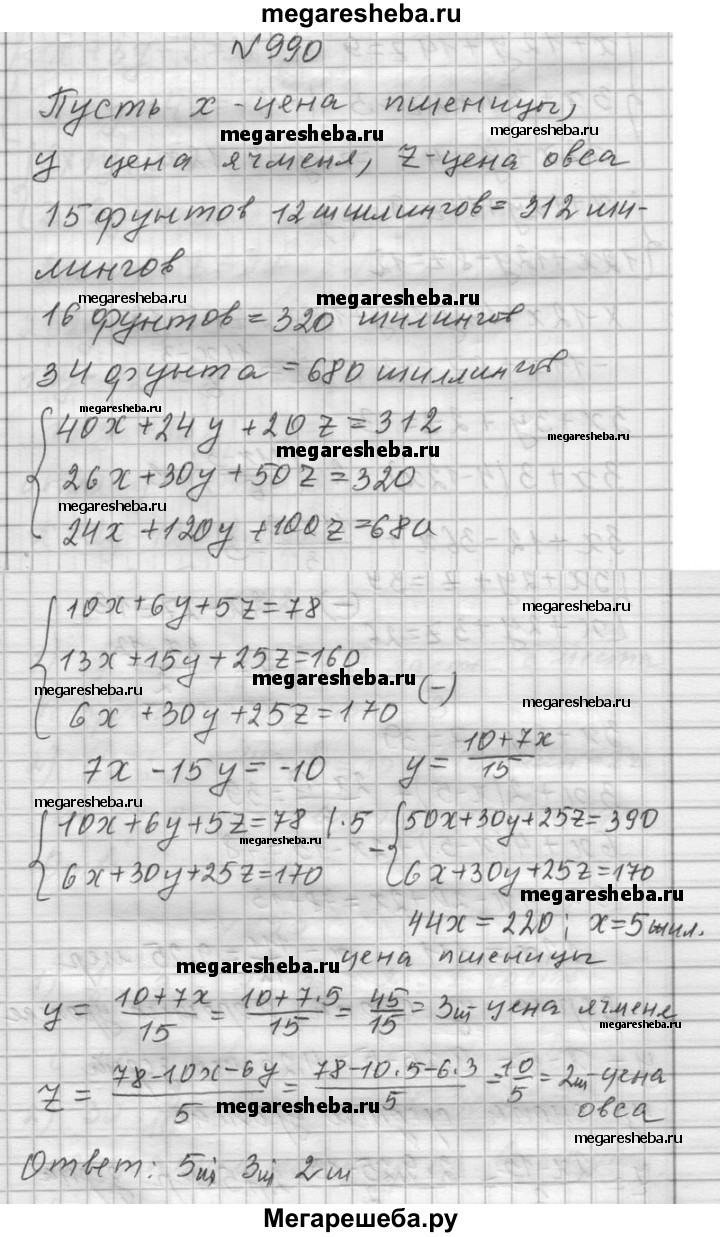 megaresheba.ru
№990
Пусть x - цена пшеницы,
megaresheba.ru megaresheba.ru
y цена ячменя, z - цена овса
15 фунтов 12 шиллингов = 312 ши-
megaresheba.ru
лингов
megaresheba.ru megaresheba.ru
16 фунтов = 320 шилингов
34 фунта = 680 шиллингов
megaresheba.ru
40x + 24y + 20z = 312
megaresheba.ru megaresheba.ru
26x + 30y + 50z = 320
megaresheba.ru
24x + 120y + 100z = 680
10x + 6y + 5z = 78 (-)
megaresheba.ru
13x + 15y + 25z = 160
megaresheba.ru megaresheba.ru (-)
6x + 30y + 25z = 170
megaresheba.ru
7x - 15y = -10 y = (10+7x)/15
megaresheba.ru megaresheba.ru
10x + 6y + 5z = 78 |·5 - 50x + 30y + 25z = 390
megaresheba.ru
6x + 30y + 25z = 170 6x + 30y + 25z = 170
megaresheba.ru
44x = 220; x = 5 шил.
цена пшеницы
megaresheba.ru
y = (10+7x)/15 = (10+7·5)/15 = 45/15 = 3ш цена ячменя
megaresheba.ru
z = (78-10x-6y)/5 = (78-10·5-6·3)/5 = 10/5 = 2ш - цена
megaresheba.ru
овса
megaresheba.ru
Ответ: 5ш 3ш 2ш
Мегарешеба.ру